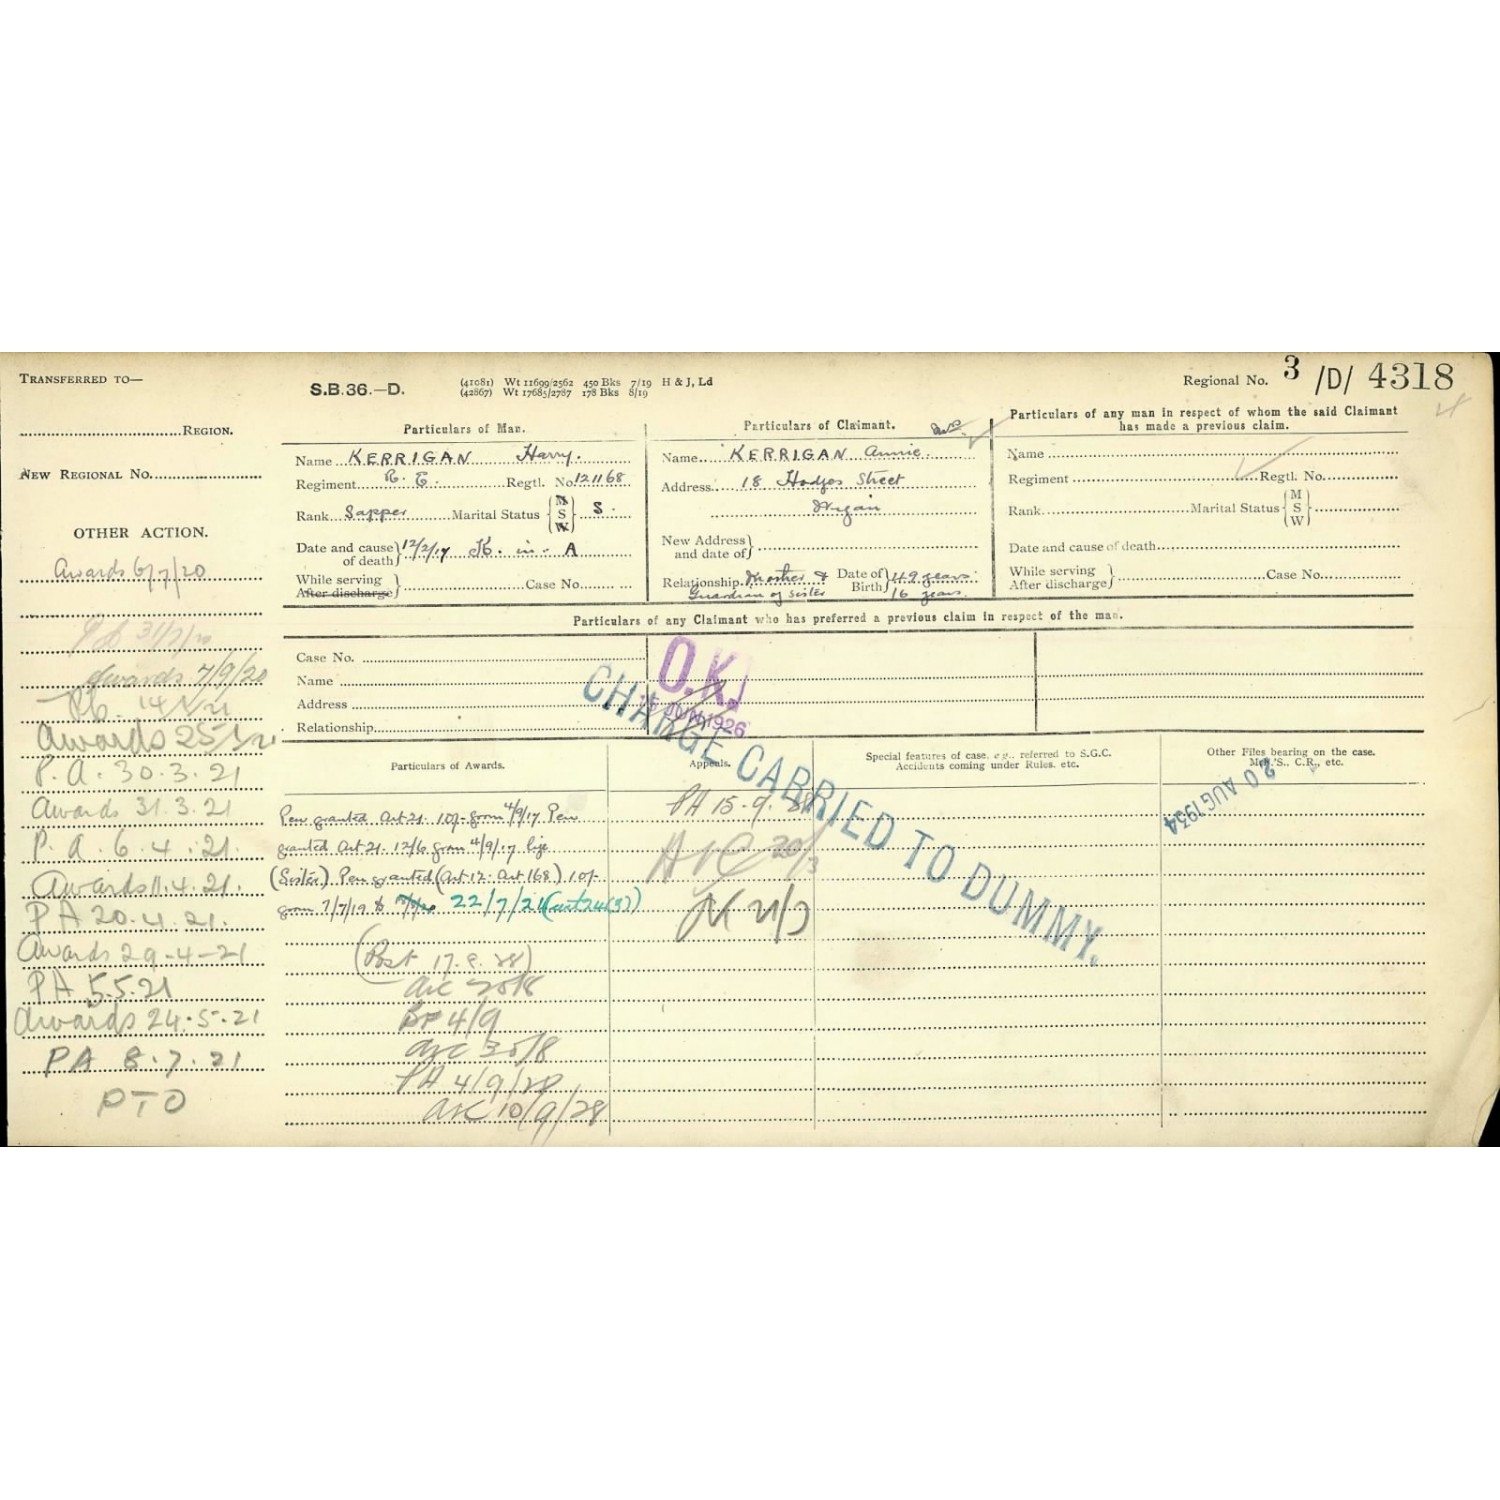 TRANSFERRED TO—
REGION.
NEW REGIONAL NO.
OTHER ACTION.
Awards 6/7/20
Awards 7/9/20
Awards 25/1/21
P.A. 30.3.21
Awards 31.3.21
P.A. 6.4.21
Awards 11.4.21.
PA 20.4.21.
Awards 29-4-21
PA 5.5.21
Awards 24.5.21
PA 8.7.21
PTO
S.B. 36.—D.
(41081) Wt 11699/2562 450 Bks 7/19 H & J, Ld
(42867) Wt 17685/2787 178 Bks 8/19
Regional No. 3 /D/ 4318
Particulars of Man.
Name KERRIGAN Harry.
Regiment R.E. Regtl. No. 121168
Rank Sapper Marital Status { M S W } S.
Date and cause of death } 12/2/17 K. in. A
While serving
After discharge } Case No.
Particulars of Claimant.
Name KERRIGAN Annie.
Address 18 Hodges Street
Wigan
New Address and date of }
Relationship Mother & Guardian of sister
Date of Birth } 49 years. 16 years.
Particulars of any man in respect of whom the said Claimant
has made a previous claim.
Name
Regiment Regtl. No.
Rank Marital Status { M S W }
Date and cause of death
While serving
After discharge } Case No.
Particulars of any Claimant who has preferred a previous claim in respect of the man.
Case No.
Name
Address
Relationship
O.K.
15 JUN 1926
CHARGE CARRIED TO DUMMY.
Particulars of Awards.
Pen granted Art 21. 10/- from 4/9/17 Pen
granted Art 21. 12/6 from 4/9/17 life
(Sister) Pen granted (Art 12. Art 168) 10/-
from 7/7/19 to 22/7/21 (art 24(3))
17.9.28)
BP 4/9
PA 4/9/28
10/9/28
Appeals.
PA 15.9.
Special features of case, e.g., referred to S.G.C.
Accidents coming under Rules, etc.
Other Files bearing on the case.
M.'S., C.R., etc.
20 AUG 1934